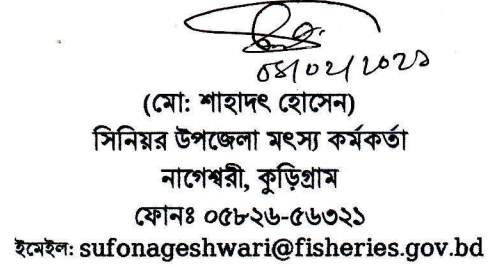 ০৪/০২/২০২১
(মো: শাহাদৎ হোসেন)
সিনিয়র উপজেলা মৎস্য কর্মকর্তা
নাগেশ্বরী, কুড়িগ্রাম
ফোনঃ ০৫৮২৬-৫৬৩২১
ইমেইল: sufonageshwari@fisheries.gov.bd